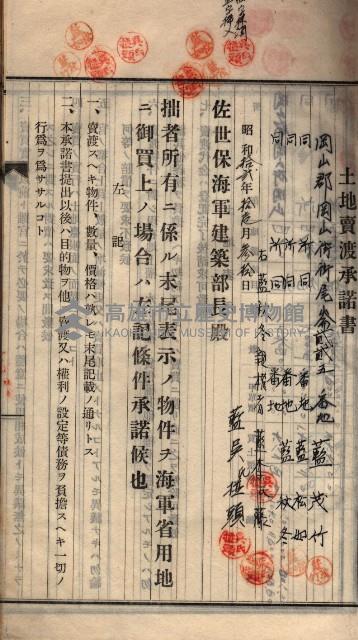 土地賣渡承諾書
岡山郡岡山街街尾崙貳貳五番地 藍茂竹
同所同番地 藍松如
同所同番地 藍秋冬
右藍秋冬親權者 藍李氏藤
藍吳氏班頭
昭和拾貳年拾壹月參拾日
佐世保海軍建築部長殿
拙者所有ニ係ル末尾表示ノ物件ヲ海軍省用地
ニ御買上ノ場合ハ左記條件承諾候也
左記
一、賣渡スヘキ物件、數量、價格ハ孰レモ末尾記載ノ通リトス
二、本承諾書提出以後ハ目的物ヲ他ニ賣渡又ハ權利ノ設定等債務ヲ負擔スヘキ一切ノ
行爲ヲ爲ササルコト
高雄市立歷史博物館